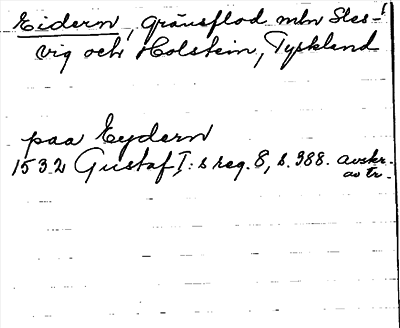 Eidern, gränsflod mln Sles-
vig och Holstein, Tyskland
paa Eydern
1532 Gustaf I:s reg. 8, s. 388. avskr.
av tr.